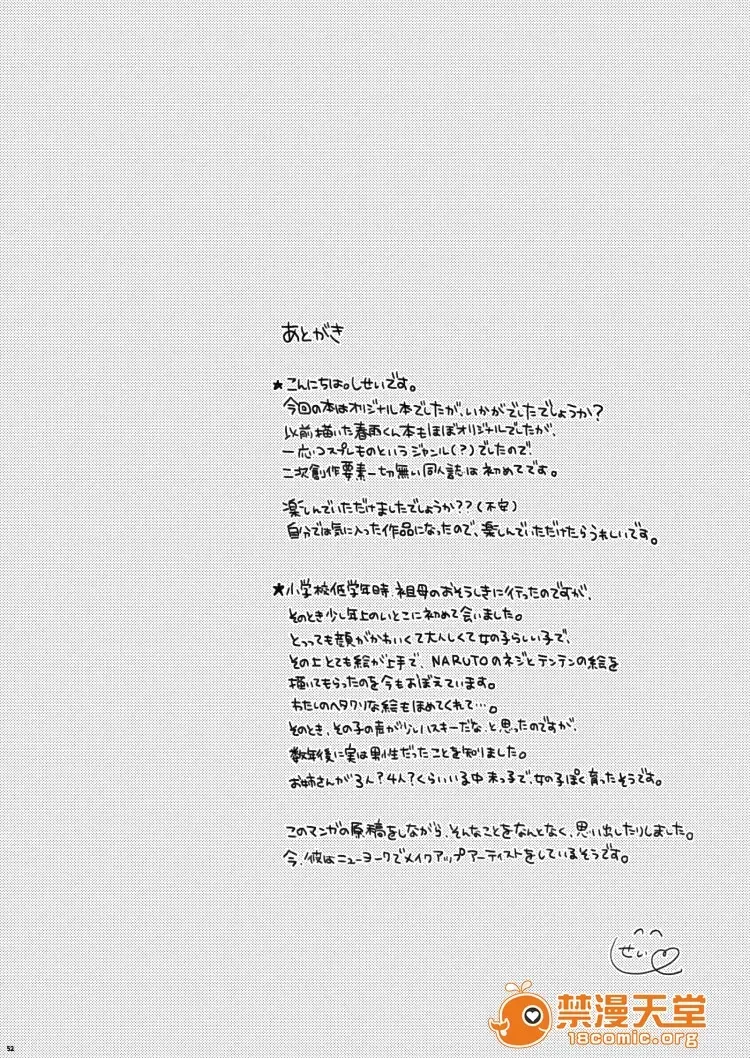 あとがき
★こんにちは。しせいです。
今回の本はオリジナル本でしたが、いかがでしたでしょうか？
以前描いた春雨くん本もほぼオリジナルでしたが、
一応コスプレものというジャンル(？)でしたので
二次創作要素一切無い同人誌は初めてです。
楽しんでいただけましたでしょうか？？(不安)
自分では気に入った作品になったので、楽しんでいただけたらうれしいです。
★小学校低学年時、祖母のおそうしきに行ったのですが、
そのとき少し年上のいとこに初めて会いました。
とっっても顔がかわいくて大人しくて女の子らしい子で、
その上とても絵が上手で、NARUTOのネジとテンテンの絵を
描いてもらったのを今もおぼえています。
わたしのヘタクソな絵もほめてくれて…。
そのとき、その子の声が少しハスキーだな、と思ったのですが、
数年後に実は男性だったことを知りました。
お姉さんが3人？4人？くらいいる中、末っ子で、女の子ぽく育ったそうです。
このマンガの原稿をしながら、そんなことをなんとなく、思い出したりしました。
今、彼はニューヨークでメイクアップアーティストをしているそうです。
せい
禁漫天堂
18comic.org
52